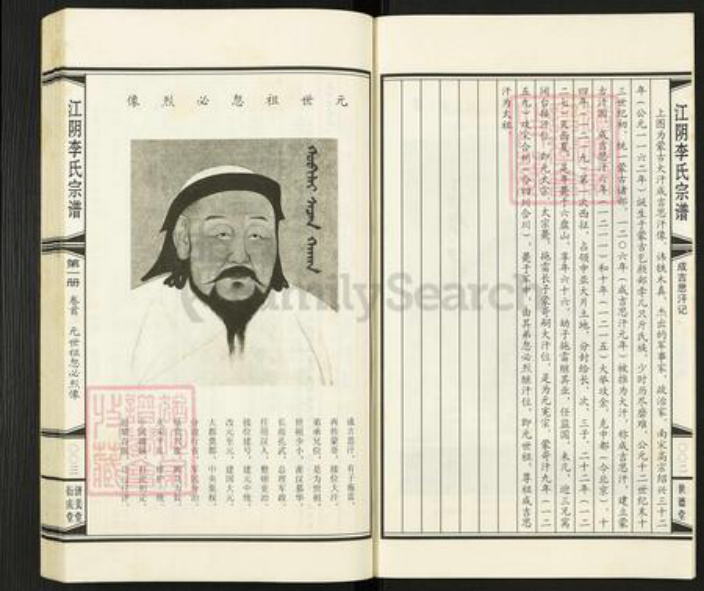 江阴李氏宗谱
成吉思汗记
上图为蒙古大汗成吉思汗像，讳铁木真，杰出的军事家、政治家，南宋高宗绍兴三十二
年（公元一一六二年）诞生于蒙古乞颜部孛儿只斤氏族，少时历尽磨难，公元十二世纪末十
三世纪初，统一蒙古诸部，一二〇六年（成吉思汗元年）被推为大汗，称成吉思汗，建立蒙
古汗国。成吉思汗六年（一二一一）和十年（一二一五）大举攻金，克中都（今北京），十
四年（一二一九）第一次西征，占领中亚大片土地，分封给长、次、三子，二十二年（一二
二七）灭西夏，是年薨于六盘山，享年六十六，幼子拖雷继其业，任监国，未几，迎三兄窝
阔台接汗位，即元太宗。太宗薨，拖雷长子蒙哥嗣大汗位，是为元宪宗，蒙哥汗九年（一二
五九）攻宋合州（今四川合川），薨于军中，由其弟忽必烈继汗位，即元世祖，尊祖成吉思
汗为太祖。
元世祖忽必烈像
江阴李氏宗谱
第一册
卷首
元世祖忽必烈像
〇〇三
成吉思汗，有子拖雷，
再传蒙哥，接位大汗，
弟承兄位，是为世祖，
世祖少小，
长尚孔武，总理军政，
任用汉人，
接位建号，建元中统，
改元至元，建国大元，
大都奠都，中央集权，
FamilySearch